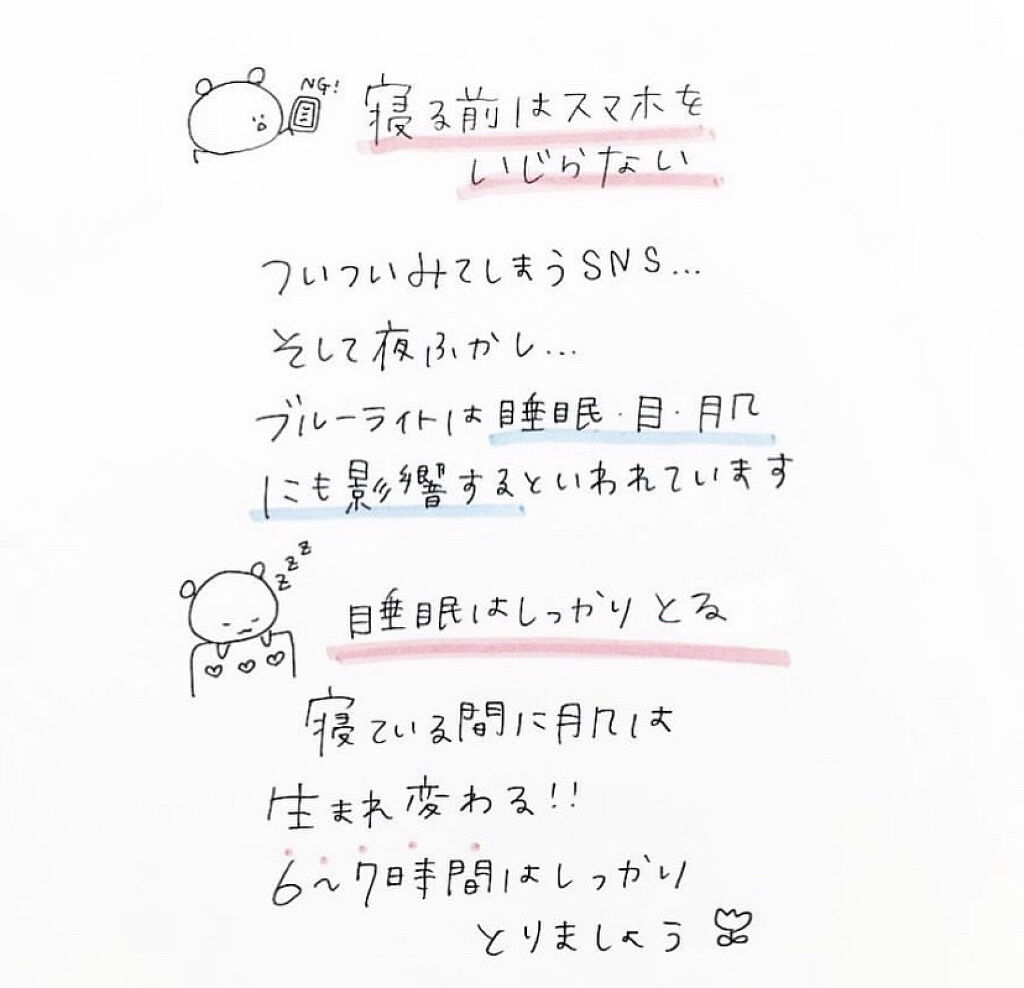 NG!
寝る前はスマホを
いじらない
ついついみてしまうSNS...
そして夜ふかし...
ブルーライトは睡眠・目・肌
にも影響するといわれています
zzz
睡眠はしっかりとる
寝ている間に肌は
生まれ変わる!!
6〜7時間はしっかり
とりましょう